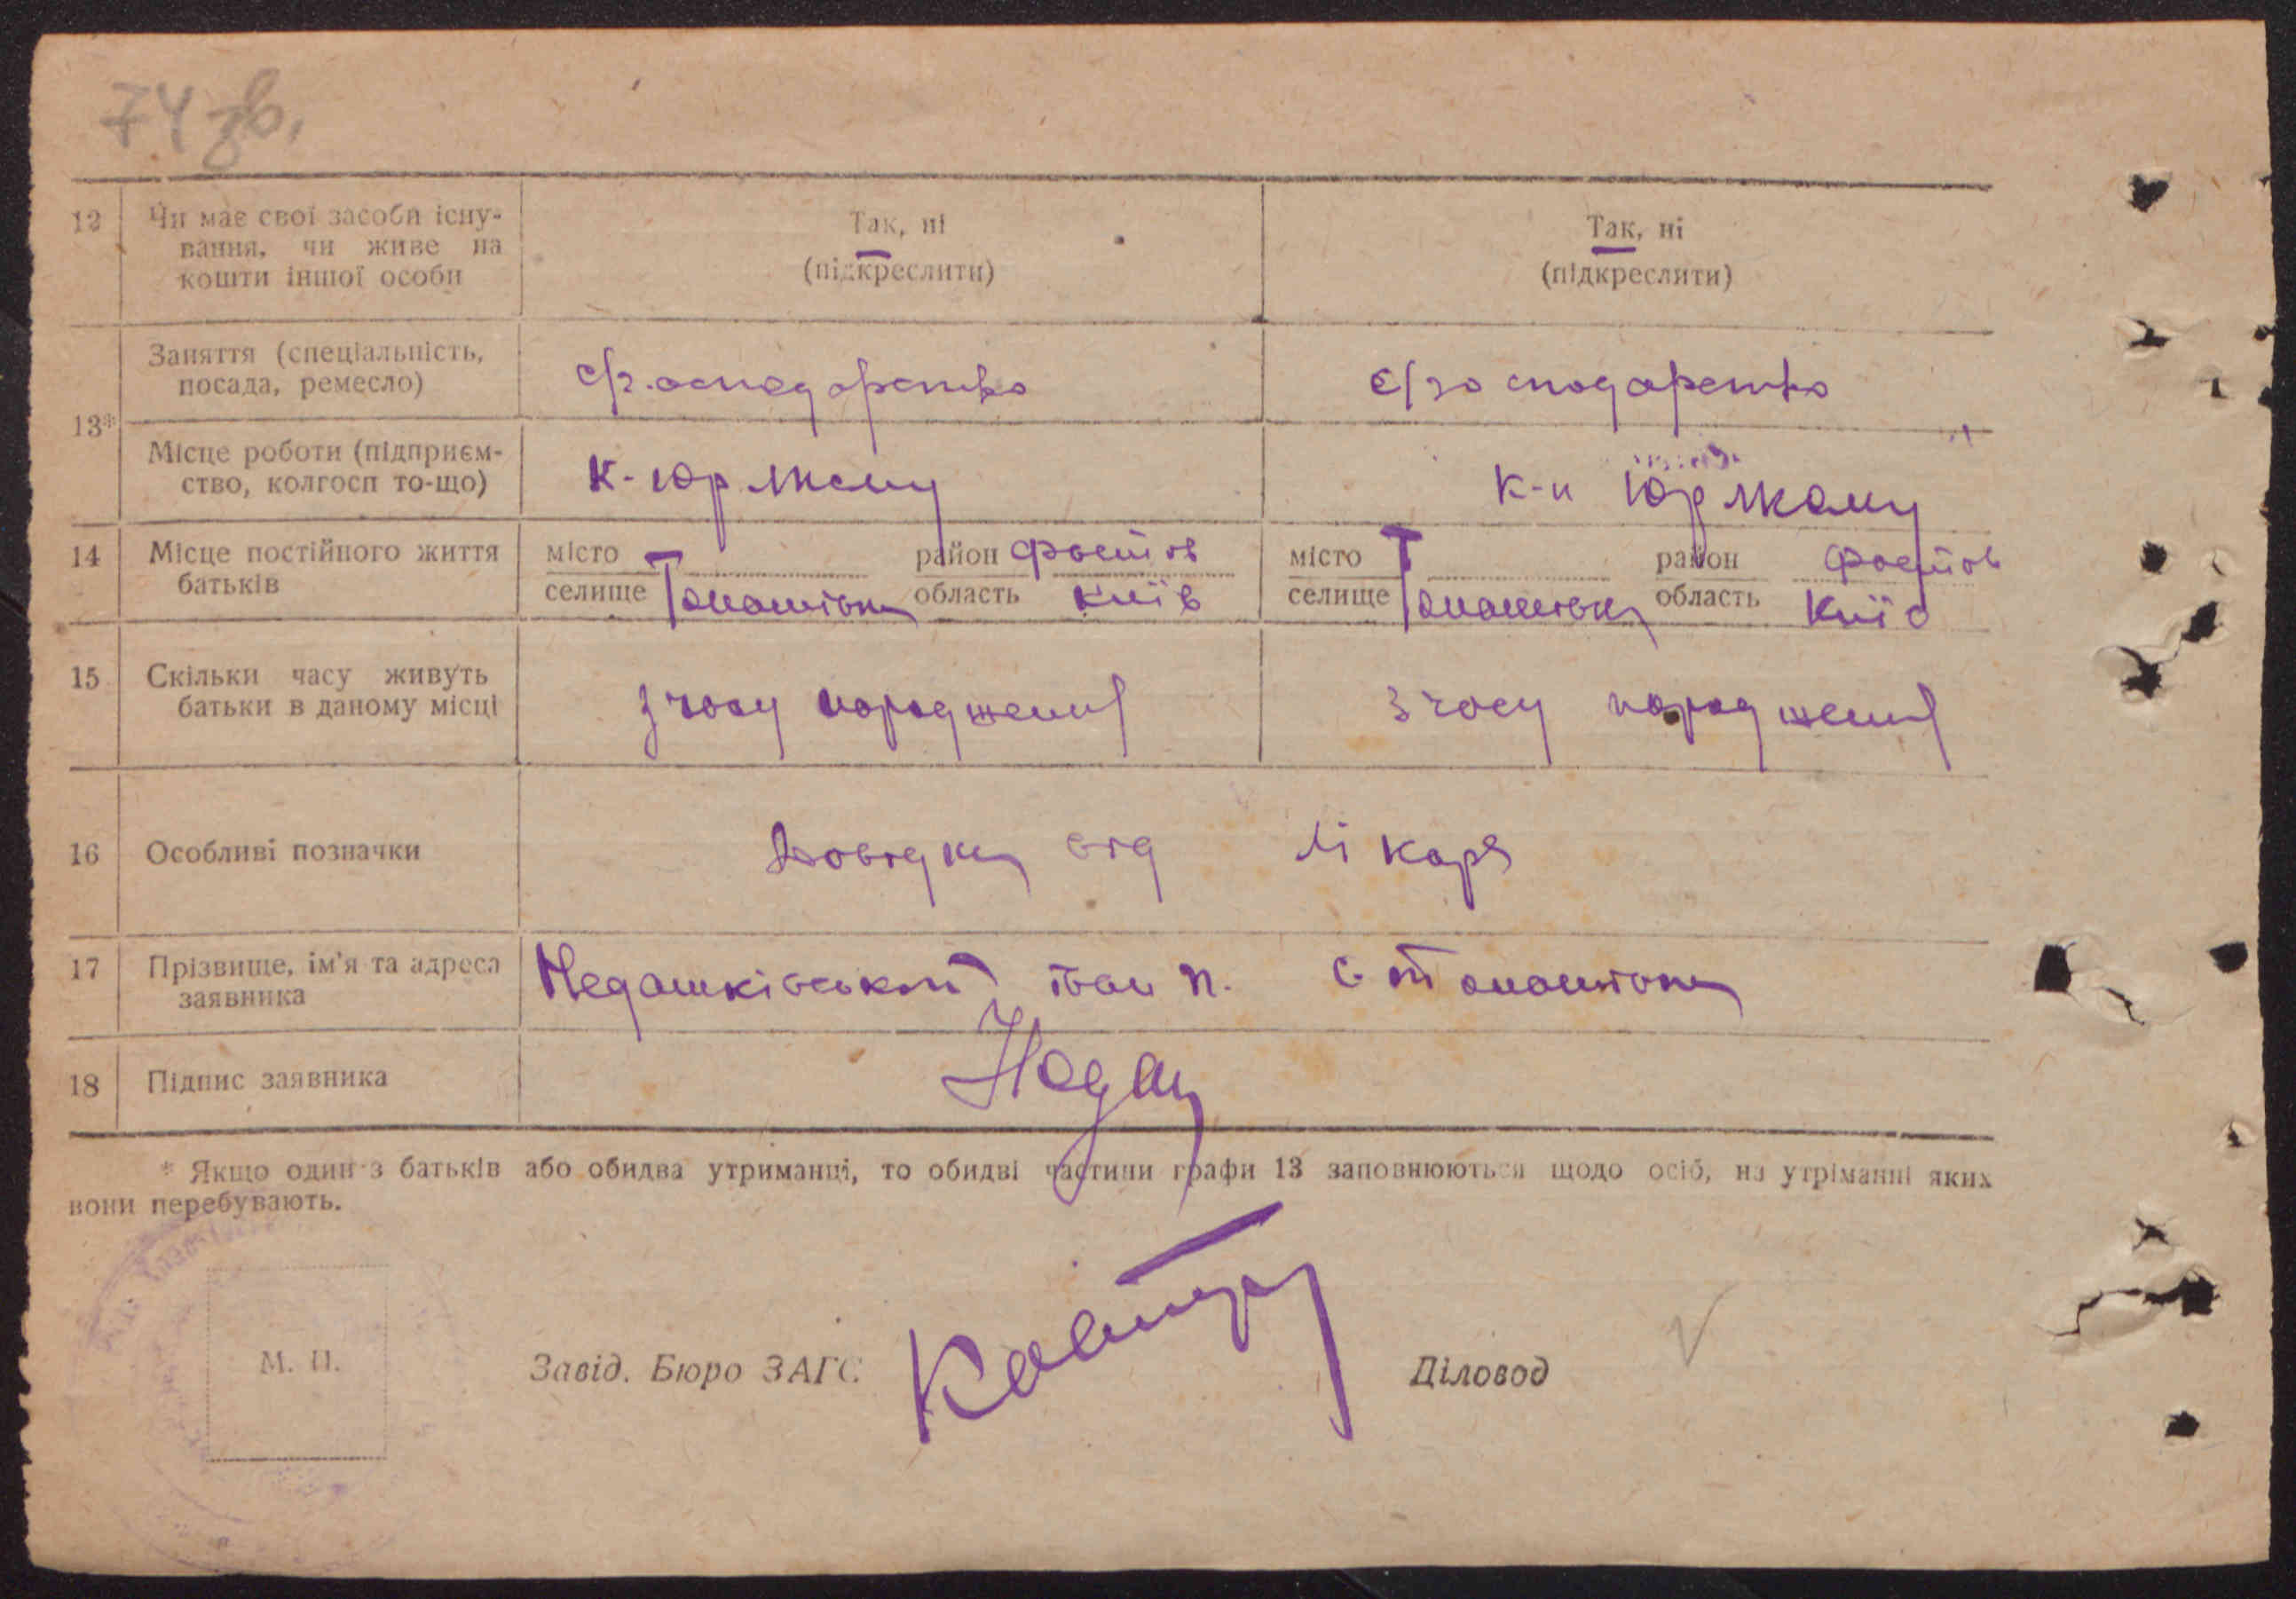 74 зв.
12 Чи має свої засоби існу- Так, ні Так, ні
вання, чи живе на
кошти іншої особи (підкреслити) (підкреслити)
Заняття (спеціальність,
посада, ремесло) с/господарство с/господарство
13*
Місце роботи (підприєм-
ство, колгосп то-що) к-
14 Місце постійного життя місто район Фастов місто район Фастов
батьків селище Томашівка область Київ селище Томашівка область Київ
15 Скільки часу живуть
батьки в даному місці з часу народження з часу народження
16 Особливі позначки Довідка від лікаря
17 Прізвище, ім'я та адреса Недашківський Іван П. с Томашівка
заявника
18 Підпис заявника Недаш
* Якщо один з батьків або обидва утриманці, то обидві частини графи 13 заповнюються щодо осіб, на утріманні яких
вони перебувають.
М. П. Завід. Бюро ЗАГС Діловод